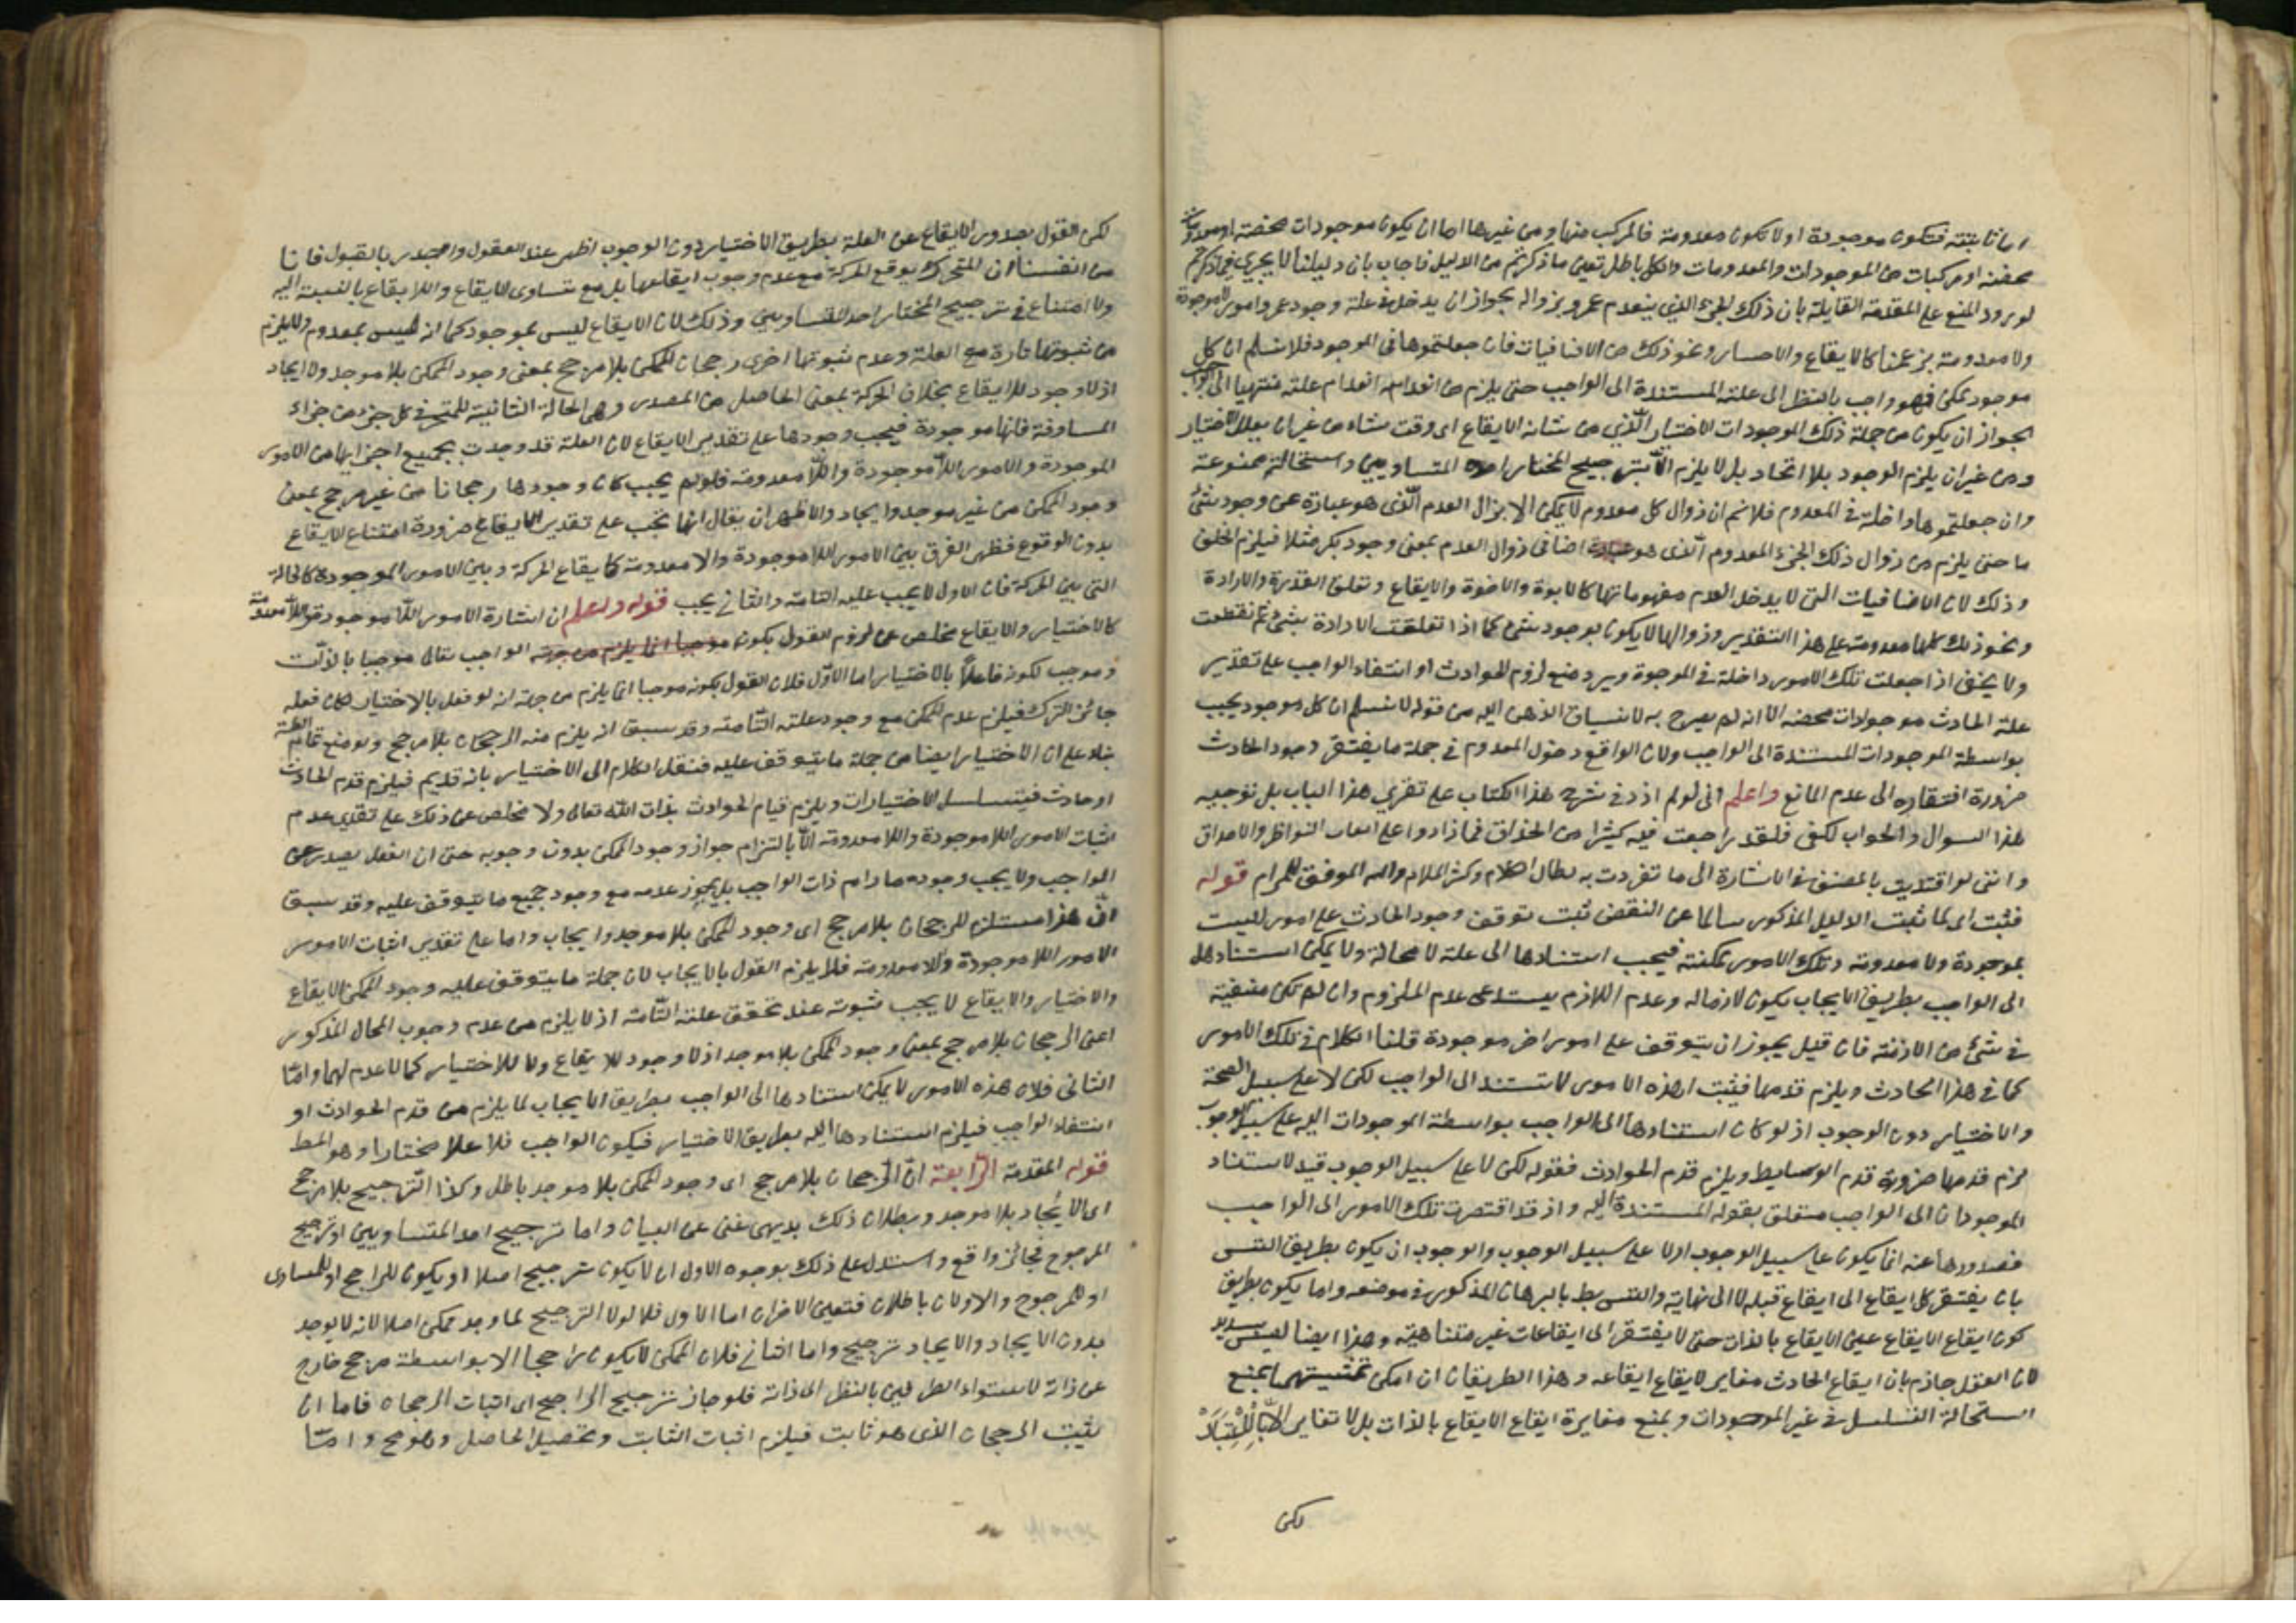 اما ثابتة فتكون موجودة او لا تكون معدومة فالمركب منها ومن غيرها اما ان يكون موجودات محضة او معدومات
محضة او مركبات من الموجودات والمعدومات والكل باطل تعين ما ذكرتم من الدليل فاجاب بان دليلنا لا يجري فيما ذكرتم
لورود المنع على المقدمة القايلة بان ذلك الجزء الذي ينعدم عمرو بزواله بجواز ان يدخل في علة وجود عمرو امور لا موجودة
ولا معدومة بزعمنا كالايقاع والاحسار ونحو ذلك من الاضافيات فان جعلتموها في الموجود فلا نسلم ان كل
موجود ممكن فهو واجب بالنظر الى علته المستندة الى الواجب حتى يلزم من انعدامه انعدام علته منتهيا الى الواجب
لجواز ان يكون من جملة ذلك الموجودات الاختيار الذي من شانه الايقاع اى وقت شاء من غير ان يعلل الاختيار
ومن غير ان يلزم الوجود بلا اتحاد بل لا يلزم الا ترجيح المختار احد المتساويين واستحالته ممنوعة
وان جعلتموها داخلة في المعدوم فلا نم ان زوال كل معدوم لا يمكن الا بزوال العدم الذى هو عبارة عن وجود شئ
ما حتى يلزم من زوال ذلك الجزء المعدوم الذى هو اضافى زوال العدم بمعنى وجود بكر مثلا فيلزم الخلف
وذلك لان الاضافيات التى لا يدخل العدم مفهوماتها كالابوة والاخوة والايقاع وتعلق القدرة والارادة
ونحو ذلك كلها معدومة على هذا التقدير وزوالها لا يكون بوجود شئ كما اذا تعلقت الارادة بشئ ثم انقطعت
ولا يخفى اذا جعلت تلك الامور داخلة في الموجودة ويرد منع لزوم الحوادث او انتفاء الواجب على تقدير
علة الحادث موجودات محضة الا انه لم يصرح به لانسياق الذهن اليه من قوله لا نسلم ان كل موجود يجب
بواسطة الموجودات المستندة الى الواجب ولان الواقع دخول المعدوم في جملة ما يفتقر وجود الحادث
ضرورة افتقاره الى عدم المانع واعلم انى لو لم ازد في شرح هذا الكتاب على تقرير هذا الباب بل توجيه
هذا السوال والجواب لكفى فلقد راجعت فيه كثيرا من الحذاق فما زادوا على اتعاب النواظر والاحداق
واننى لو اقتديت بالمصنف في الاشارة الى ما تفردت به لطال الكلام وكثر الملام والله الموفق للمرام قوله
فثبت اى لما ثبت الدليل المذكور سالما عن النقض ثبت توقف وجود الحادث على امور ليست
بموجودة ولا معدومة وتلك الامور ممكنة فيجب استنادها الى علة لا محالة ولا يمكن استنادها
الى الواجب بطريق الايجاب يكون لازما له وعدم اللازم يستدعى عدم الملزوم وان لم تكن منفية
في شئ من الازمنة فان قيل يجوز ان يتوقف على امور اخر موجودة قلنا الكلام في تلك الامور
كما في هذا الحادث ويلزم قدمها فيثبت ان هذه الامور لا تستند الى الواجب لكن لا على سبيل الصحة
والاختيار دون الوجوب اذ لو كان استنادها الى الواجب بواسطة الموجودات اليه على سبيل الوجوب
لزم قدمها ضرورة قدم الوسايط ويلزم قدم الحوادث فقوله لكن لا على سبيل الوجوب قيد لاستناد
الموجودات الى الواجب متعلق بقوله المستندة اليه واذ قد افتقرت تلك الامور الى الواجب
فصدورها عنه انما يكون على سبيل الوجوب اولا على سبيل الوجوب والوجوب ان يكون بطريق التس
بان يفتقر كل ايقاع الى ايقاع قبله لا الى نهاية والتس بط بالبرهان المذكور في موضعه واما يكون بطريق
كون ايقاع الايقاع عين الايقاع بالذات حتى لا يفتقر الى ايقاعات غير متناهية وهذا ايضا ليس بسديد
لان العقل جازم بان ايقاع الحادث مغاير لايقاع ايقاعه وهذا الطريقان ان امكن تمشيتهما بمنع
استحالة التسلسل في غير الموجودات وبمنع مغايرة ايقاع الايقاع بالذات بل لا تغاير الا بالاعتبار
لكن
لكن القول بصدور الايقاع عن العلة بطريق الاختيار دون الوجوب اظهر عند العقول واجدر بالقبول فانا
من انفسنا ان المتحرك يوقع الحركة مع عدم وجوب ايقاعها بل مع تساوى الايقاع واللا ايقاع بالنسبة اليه
ولا امتناع في ترجيح المختار احد المتساويين وذلك لان الايقاع ليس بموجود كما انه ليس بمعدوم ولا يلزم
من ثبوتها تارة مع العلة وعدم ثبوتها اخرى رجحان الممكن بلا مرجح بمعنى وجود الممكن بلا موجد ولا ايجاد
اذ لا وجود للايقاع بخلاف الحركة بمعنى الحاصل من المصدر وهى الحالة الثانية للمتحرك في كل جزء من اجزاء
المسافة فانها موجودة فيجب وجودها على تقدير الايقاع لان العلة قد وجدت بجميع اجزايها من الامور
الموجودة والامور اللا موجودة واللا معدومة فلو لم يجب كان وجودها رجحانا من غير مرجح بمعنى
وجود الممكن من غير موجد وايجاد والاظهر ان يقال انها تجب على تقدير الايقاع ضرورة امتناع الايقاع
بدون الوقوع فظهر الفرق بين الامور اللا موجودة والا معدومة كايقاع الحركة وبين الامور الموجودة كالحالة
التى بين الحركة فان الاول لا يجب عليه التامة والثانى يجب قوله ولعلم ان اشارة الامور اللا موجودة واللا معدومة
كالاختيار والايقاع مخلص عن لزوم القول بكون الواجب تعالى موجبا بالذات
وموجب لكونه فاعلا بالاختيار اما الاول فلان القول بكونه موجبا انما يلزم من جهة انه لو فعل بالاختيار لكان فعله
جائز الترك فيلزم عدم الممكن مع وجود علته التامة وقد سبق انه يلزم منه الرجحان بلا مرجح ولو منع تمام العلة
بناء على ان الاختيار ايضا من جملة ما يتوقف عليه فننقل الكلام الى الاختيار بانه قديم فيلزم قدم الحادث
او حادث فيتسلسل الاختيارات ويلزم قيام الحوادث بذات الله تعالى ولا مخلص عن ذلك على تقدير عدم
اثبات الامور اللا موجودة واللا معدومة الا بالتزام جواز وجود الممكن بدون وجوبه حتى ان الفعل يصدر عن
الواجب ولا يجب وجوده ما دام ذات الواجب بل يجوز عدمه مع وجود جميع ما يتوقف عليه وقد سبق
ان هذا مستلزم للرجحان بلا مرجح اى وجود الممكن بلا موجد وايجاب واما على تقدير اثبات الامور
الامور اللا موجودة واللا معدومة فلا يلزم القول بالايجاب لان جملة ما يتوقف عليه وجود الممكن الايقاع
والاختيار والايقاع لا يجب ثبوته عند تحقق علته التامة اذ لا يلزم من عدم وجوب المحال المذكور
اعنى الرجحان بلا مرجح بمعنى وجود الممكن بلا موجد اذ لا وجود للايقاع ولا للاختيار كما لا عدم لهما واما
الثانى فلان هذه الامور لا يمكن استنادها الى الواجب بطريق الايجاب لما يلزم من قدم الحوادث او
انتفاء الواجب فيلزم استنادها اليه بطريق الاختيار فيكون الواجب فاعلا مختارا وهو المط
قوله المقدمة الرابعة ان الرجحان بلا مرجح اى وجود الممكن بلا موجد باطل وكذا الترجيح بلا مرجح
اى الايجاد بلا موجد وبطلان ذلك بديهى غنى عن البيان واما ترجيح احد المتساويين او ترجيح
المرجوح فجائز واقع واستدل على ذلك بوجوه الاول ان لا يكون ترجيح اصلا او يكون للراجح او للمساوى
او للمرجوح والاولان باطلان فتعين الاخران اما الاول فلا لولا الترجيح لما وجد ممكن اصلا لانه لا يوجد
بدون الايجاد والايجاد ترجيح واما الثانى فلان الممكن لا يكون راجحا الا بواسطة مرجح خارج
عن ذاته لاستواء الطرفين بالنظر الى ذاته فلو جاز ترجيح الراجح اى اثبات الرجحان فاما ان
يثبت الرجحان الذى هو ثابت فيلزم اثبات الثابت وتحصيل الحاصل وهو مح واما